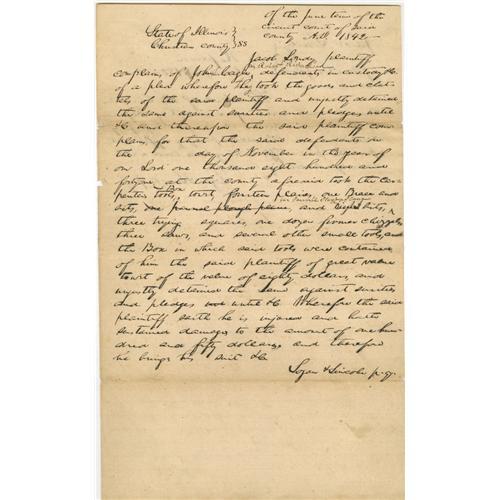 Of the June term of the
State of Illinois circuit court of said
Christian county } SS county A.D. 1842—
Jacob plaintiff
complains of John defendants in custody &c
of a plea wherefore they took the goods and chat-
tles of the said plaintiff and unjustly detained
the same against sureties and pledges until
&c and thereupon the said plaintiff com-
plains for that the said defendants on
the day of November in the year of
our Lord one thousand eight hundred and
fortyone at the county aforesaid took the Car-
penters tools, towit fourteen plains, one Brace and
Box
bits,
three trying squares, one dozen firmer chizzels,
three saws, and several other small tools, and
the Box in which said tools were contained
of him the said plaintiff of great value
towit of the value of eighty dollars, and
unjustly detained the same against sureties
and pledges until &c Wherefore the said
plaintiff saith he is injured and hath
sustained damages to the amount of one hun-
dred and fifty dollars and therefore
he brings his suit &c
Logan & Lincoln p.q.